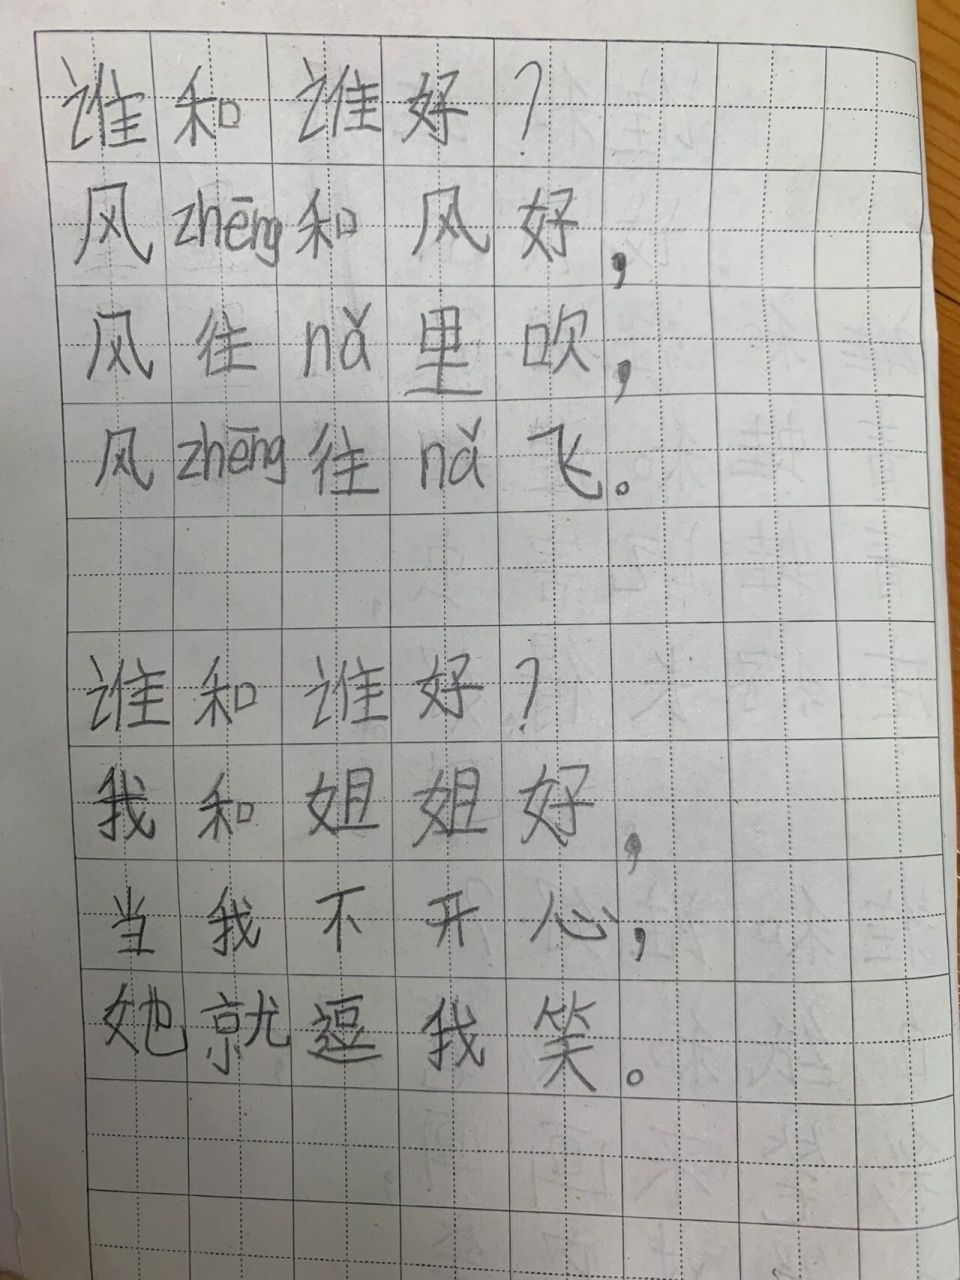 谁和谁好？
风zhēng和风好，
风往nǎ里吹，
风zhēng往nǎ飞。
谁和谁好？
我和姐姐好，
当我不开心，
她就逗我笑。